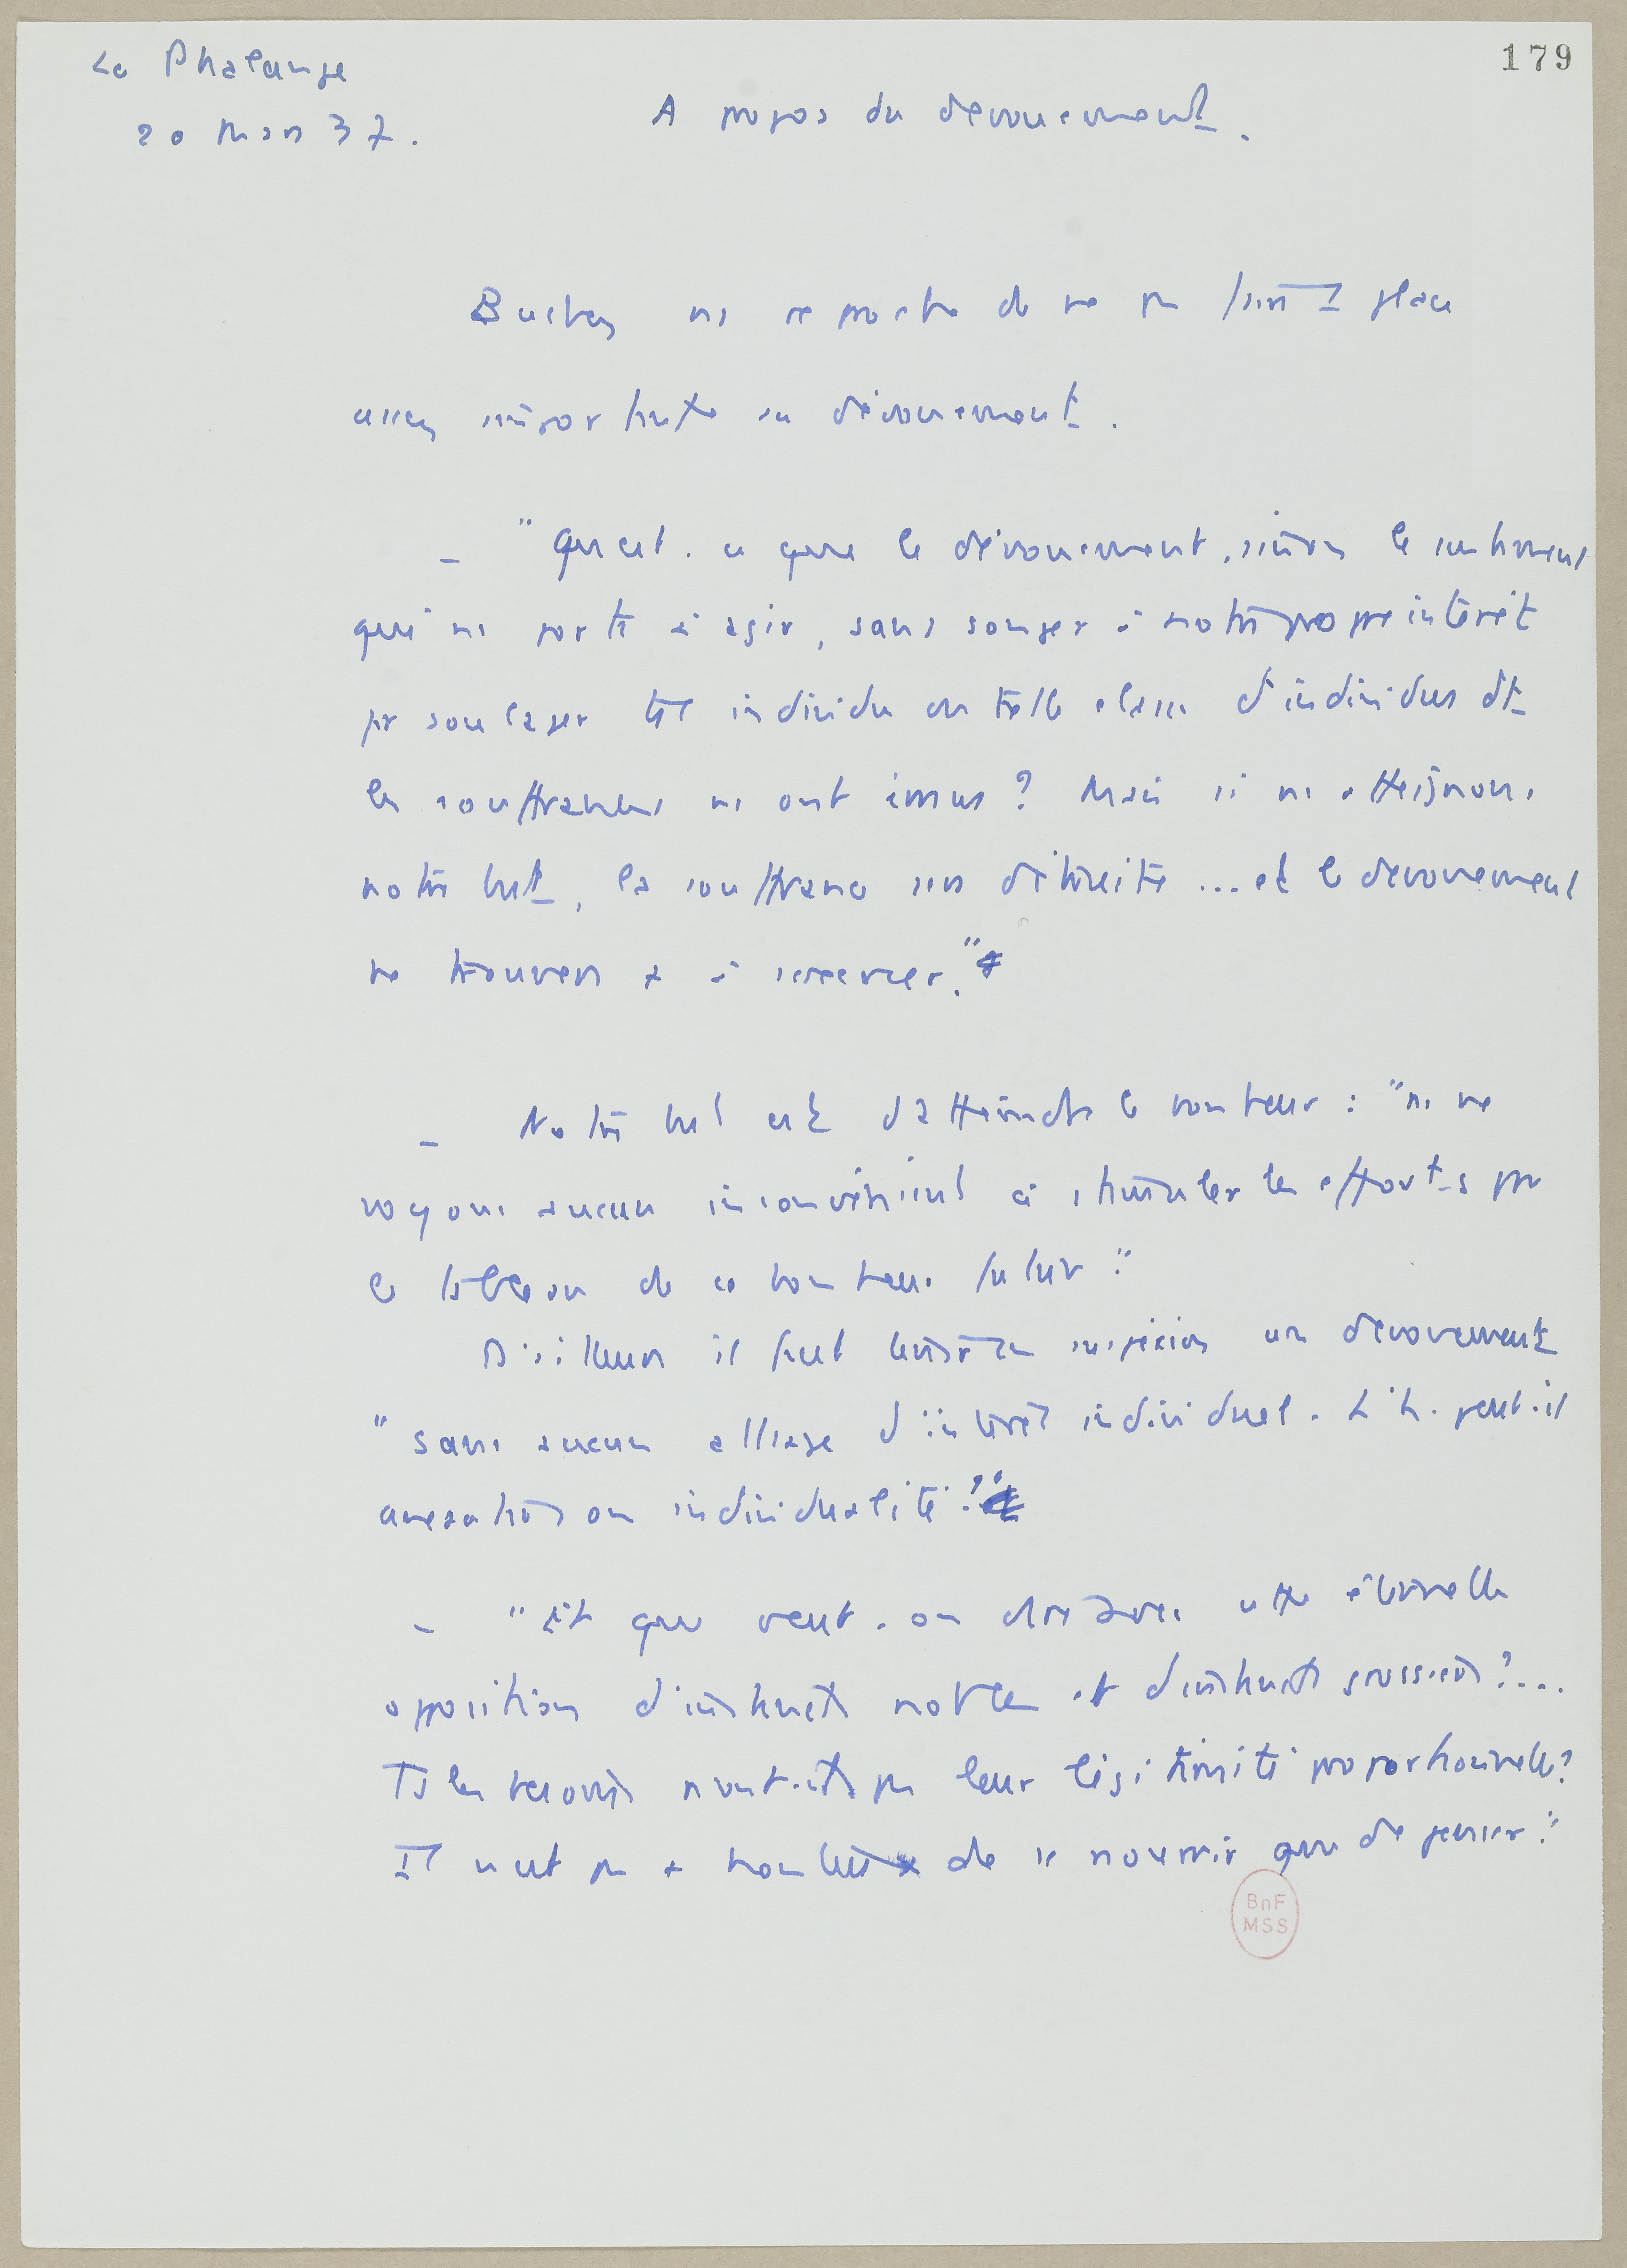 La Phalange
179
20 Mars 37.
A propos du dévouement.
Buchez ns reproche de ne pas faire 1 place
assez importante au dévouement.
_ "Qu'est-ce que le dévouement, sinon le sentiment
qui ns porte à agir, sans songer à notre propre intérêt
pr soulager tel individu ou telle classe d'individus dt
les souffrances ns ont émus ? Mais si ns atteignons
notre but, la souffrance sera détruite ... et le dévouement
ne trouvera + à s'exercer."
_ Notre but est d'atteindre le bonheur : "ns ne
voyons aucun inconvénient à stimuler les efforts par
le tableau de ce bonheur futur"
D'ailleurs il faut tenir en suspicion un dévouement
"sans aucun alliage d'intérêt individuel. L'h. peut-il
anéantir son individualité ?"
_ "Et que veut-on dire avec cette éternelle
opposition d'instincts nobles et d'instincts grossiers ?....
Ts les besoins n'ont-ils pas leur légitimité proportionnelle ?
Il n'est pas + honteux de se nourrir que de penser."
BnF
MSS